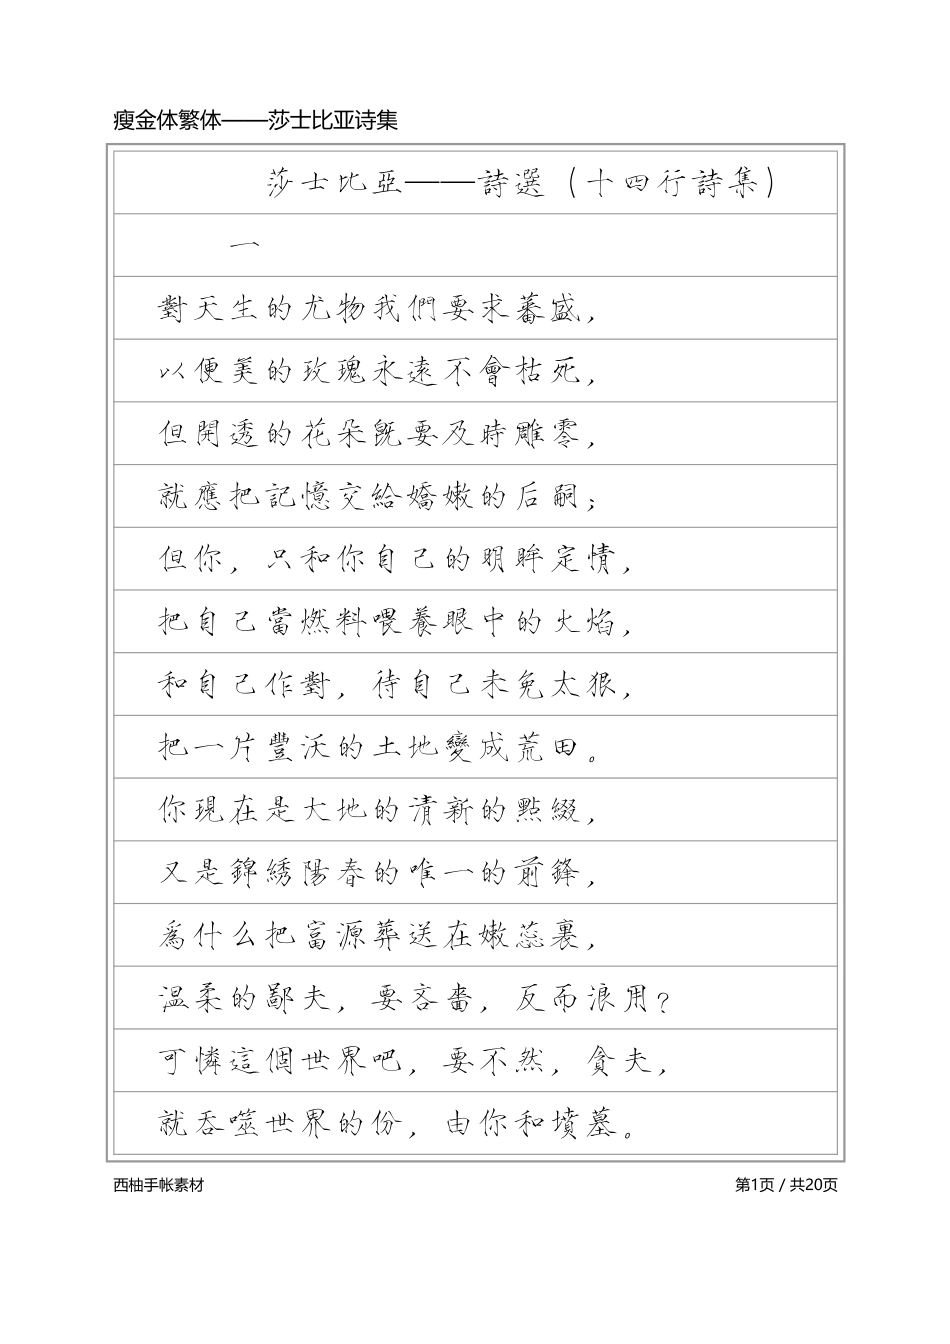 瘦金体繁体——莎士比亚诗集
莎士比亞——詩選（十四行詩集）
一
對天生的尤物我們要求蕃盛，
以便美的玫瑰永遠不會枯死，
但開透的花朵既要及時雕零，
就應把記憶交給嬌嫩的后嗣；
但你，只和你自己的明眸定情，
把自己當燃料喂養眼中的火焰，
和自己作對，待自己未免太狠，
把一片豐沃的土地變成荒田。
你現在是大地的清新的點綴，
又是錦綉陽春的唯一的前鋒，
爲什么把富源葬送在嫩蕊裏，
温柔的鄙夫，要吝嗇，反而浪用？
可憐這個世界吧，要不然，貪夫，
就吞噬世界的份，由你和墳墓。
西柚手帐素材
第1页 / 共20页